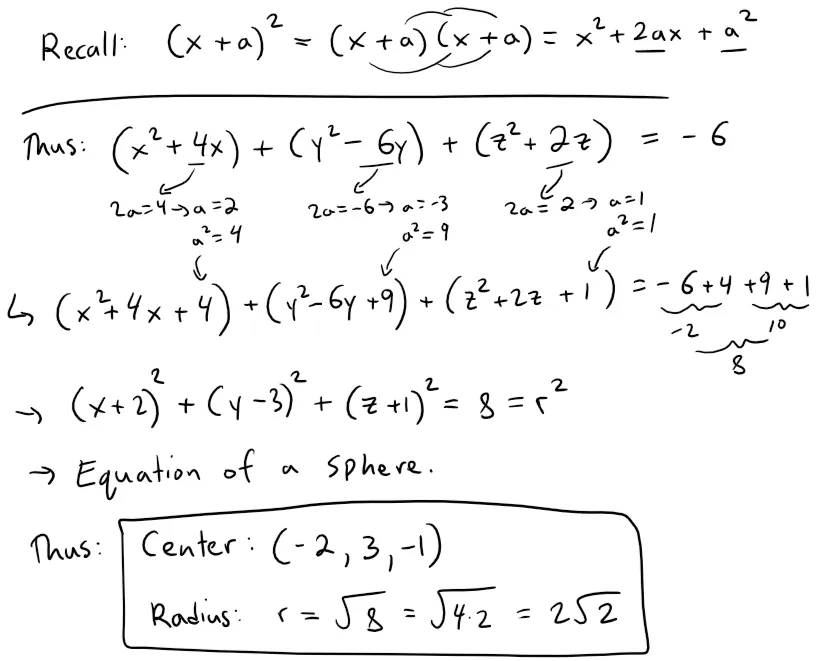 Recall: (x + a)² = (x + a)(x + a) = x² + 2ax + a²
Thus: (x² + 4x) + (y² - 6y) + (z² + 2z) = - 6
2a=4 → a=2 2a=-6 → a=-3 2a= 2 → a=1
a²=4 a²=9 a²=1
↳ (x²+4x+4) + (y²-6y+9) + (z²+2z+1) = - 6+4 +9+1
-2 10
8
→ (x+2)² + (y-3)² + (z+1)² = 8 = r²
→ Equation of a sphere.
Thus: Center: (-2, 3, -1)
Radius: r = √8 = √4·2 = 2√2